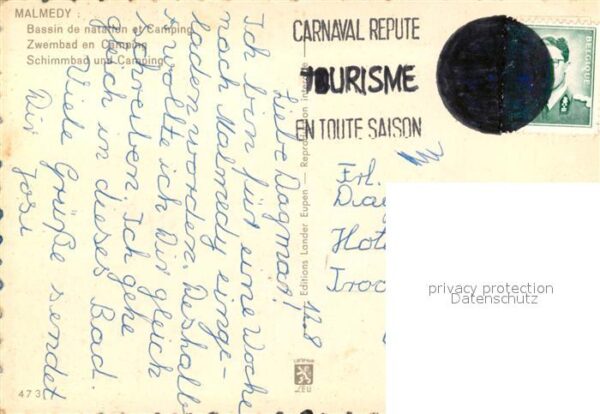 MALMEDY :
Bassin de natation et Camping
Zwembad en Camping
Schimmbad und Camping
CARNAVAL REPUTE
TOURISME
EN TOUTE SAISON
BELGIQUE
12.8
Liebe Dagmar!
Ich bin für eine Woche
nach Malmedy einge-
laden worden. Deshalb
wollte ich Dir gleich
schreiben. Ich gehe
gleich in dieses Bad.
Viele Grüße sendet
Dir Josi
Editions Lander Eupen — Reproduction interdite
Frl.
Dag
Hote
privacy protection
Datenschutz
473